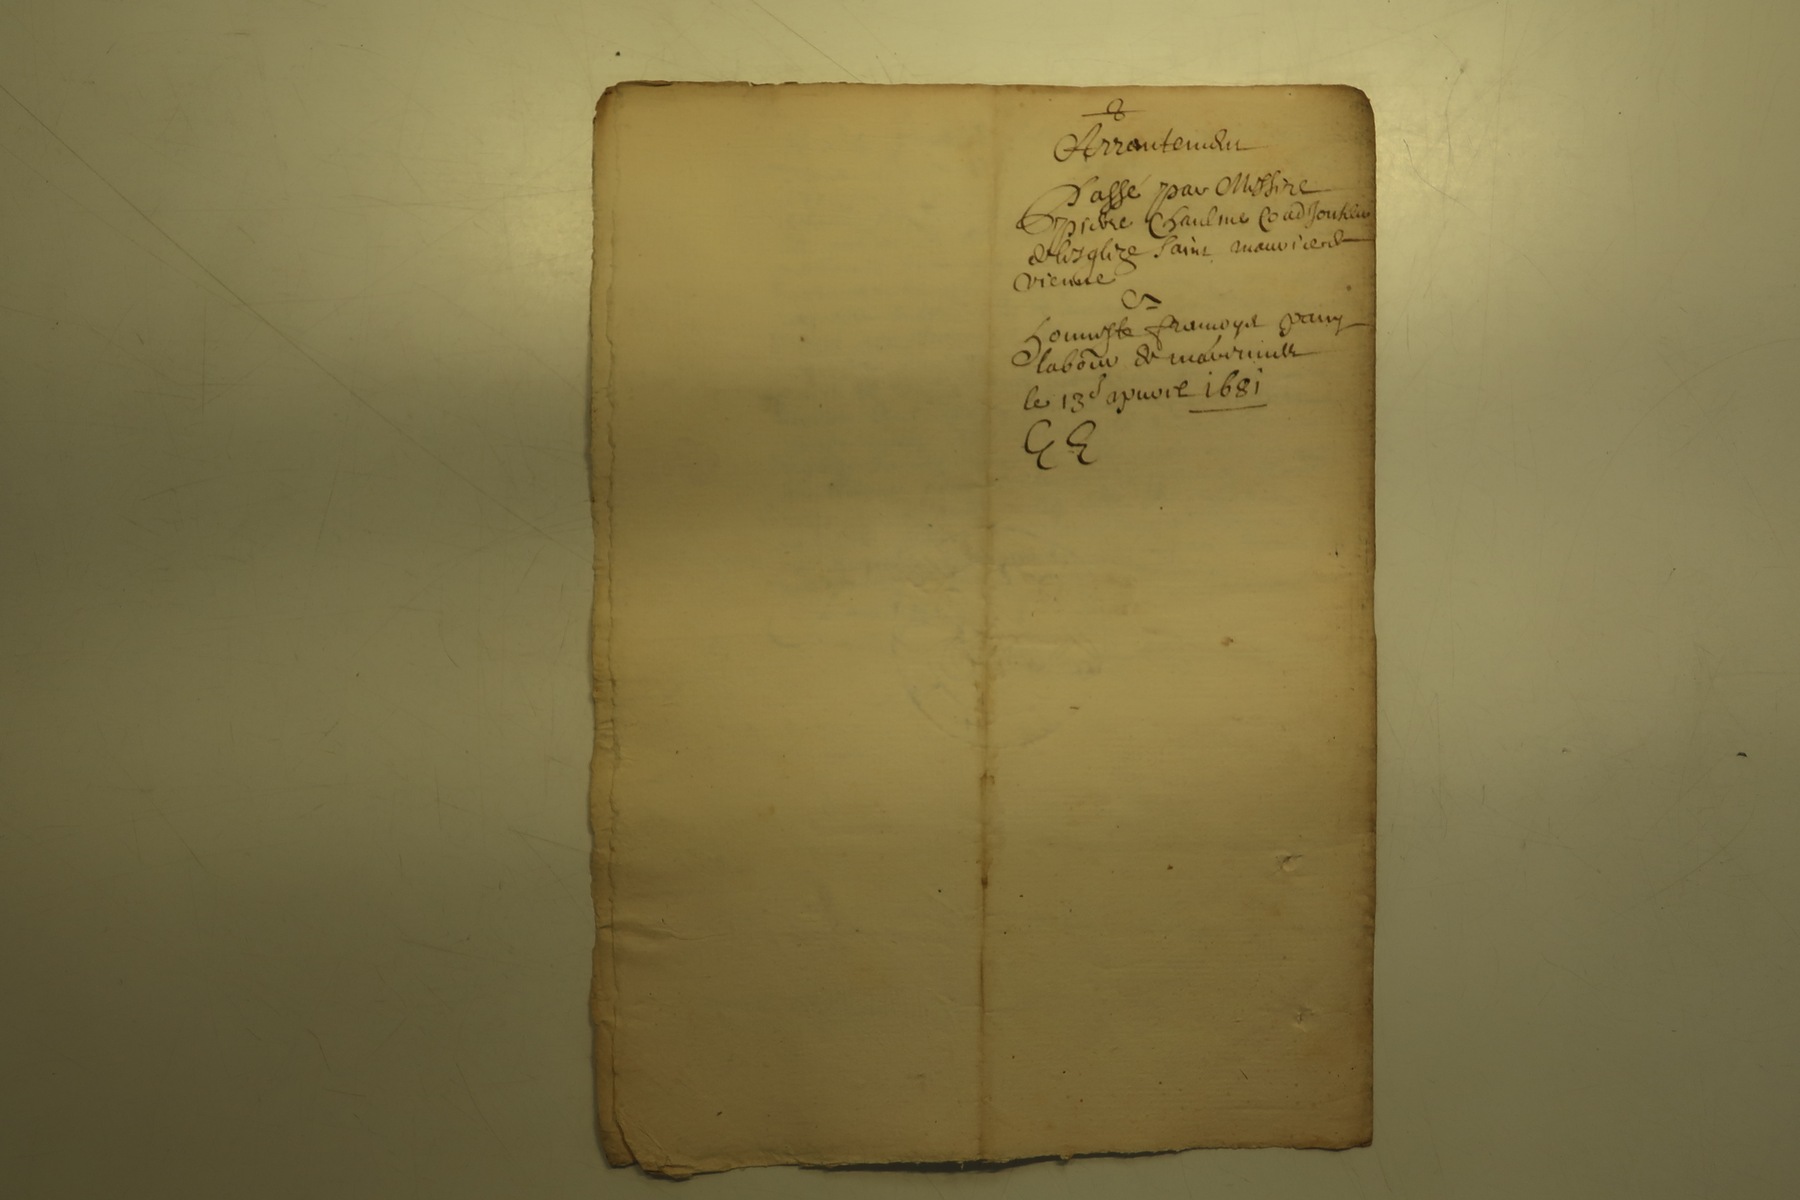 8
Arrantemen
Passé par Messire
pierre Chaulme Coadjouteur
de l'esglize saint maurice de
vienne
A
honneste francoys
labõur de
le 13e apvril 1681
EE